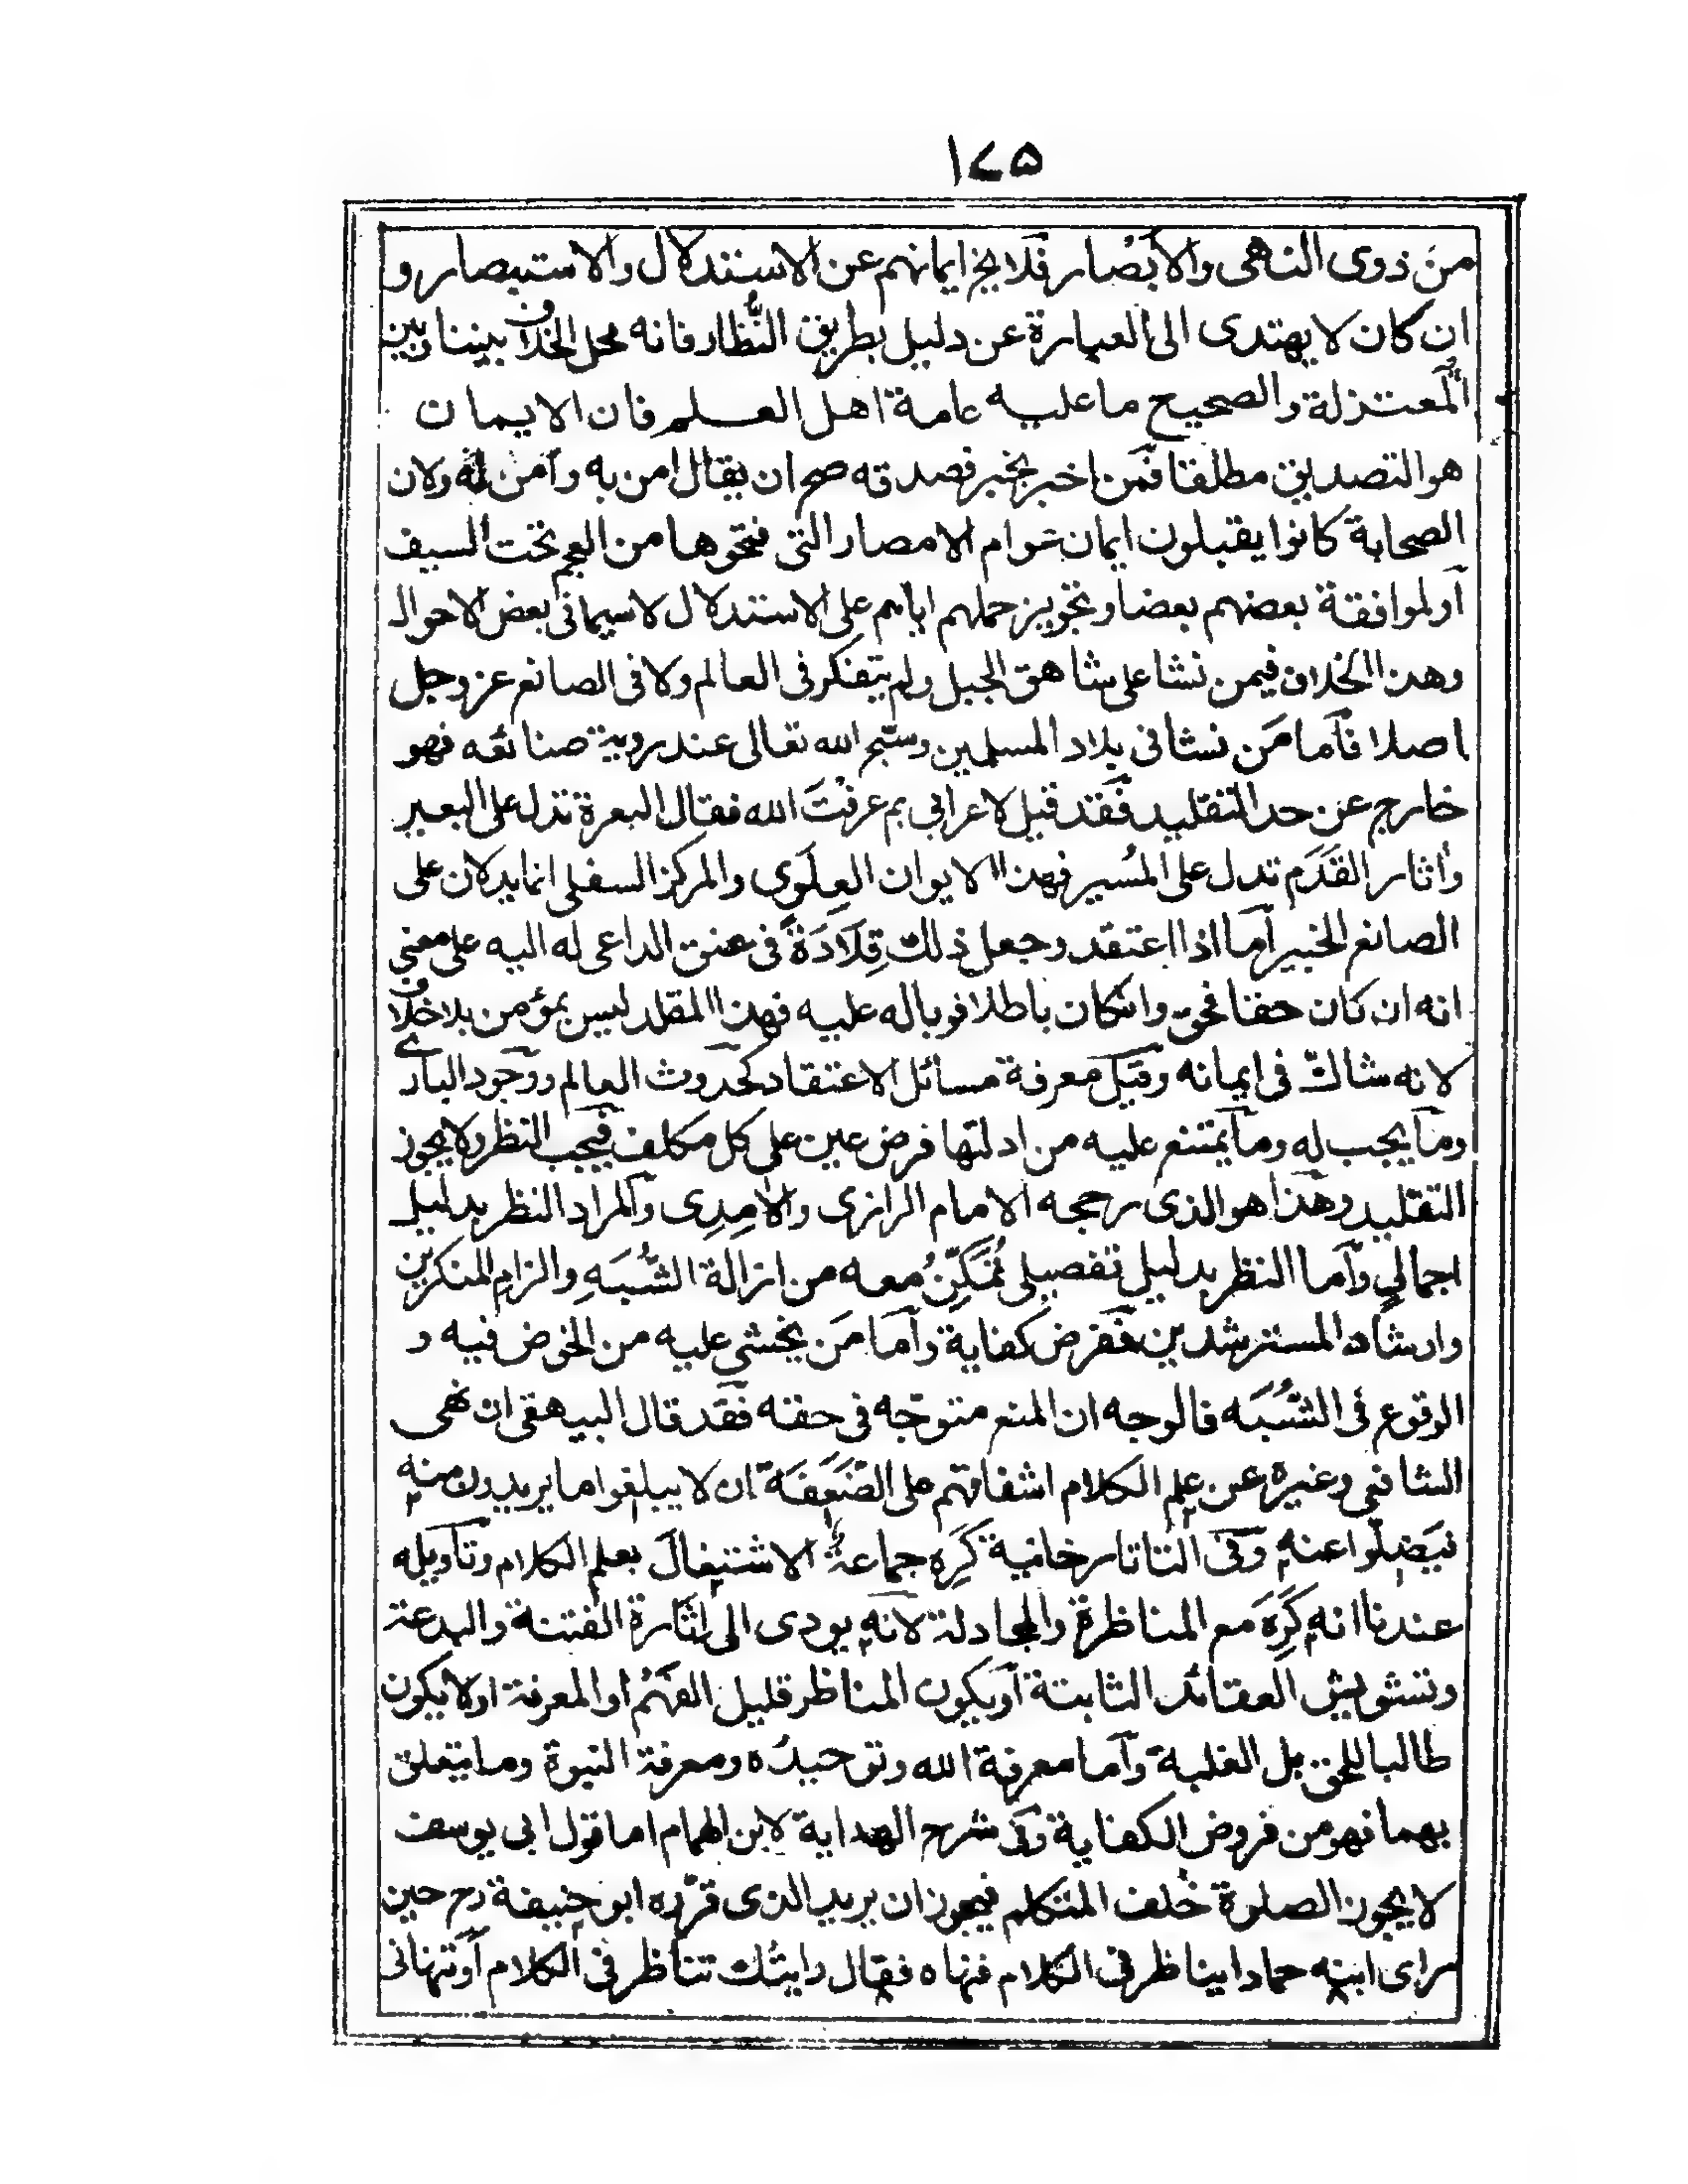 ١٤٥
من ذوى النهى والابصار فلا يخ ايمانهم عن الاستدلال والاستبصار و
ان كان لا يهتدى الى العبارة عن دليل بطريق النُّظار فانه محل الخلاف بيننا وبين
المعتزلة والصحيح ما عليه عامة اهل العلم فان الايمان
هو التصديق مطلقا فمن اخبر بخبر فصدقه صح ان يقال امن به وآمن له ولان
الصحابة كانوا يقبلون ايمان عوام الامصار التى فتحوها من العجم تحت السيف
او لموافقة بعضهم بعضا وتجويز حملهم اياهم على الاستدلال لاسيما فى بعض الاحوال
وهذا الخلاف فيمن نشا على شاهق الجبل ولم يتفكر فى العالم ولا فى الصانع عز وجل
اصلا فاما مَن نشا فى بلاد المسلمين وسبّح الله تعالى عند روية صنائعه فهو
خارج عن حد التقليد فقد قيل لاعرابى بم عرفتَ الله فقال البعرة تدل على البعير
واثار القَدَم تدل على المُسير فهذا الايوان العِلَوِى والمركز السفلى انما يدلان على
الصانع الخبير اما اذا اعتقد وجعل ذلك قِلَادَةً فى عنق الداعى له اليه على معنى
انه ان كان حقا فحق وانكان باطلا فوباله عليه فهذا المقلد ليس بمؤمن بلا خلاف
لانه شاكّ فى ايمانه وقيل معرفة مسائل الاعتقاد كحدوث العالم ووجود البارى
وما يجب له وما يمتنع عليه من ادلتها فرض عين على كل مكلف فيجب النظر ولا يجوز
التقليد وهذا هو الذى رجحه الامام الرازى والامِدِى والمراد النظر بدليل
اجمالى واما النظر بدليل تفصيلى يُمَكِّنُ معه من ازالة الشُّبَهِ والزام المنكرين
وارشاد المسترشدين ففرض كفاية واما مَن يخشى عليه من الخوض فيه و
الوقوع فى الشُّبَه فالوجه ان المنع متوجّه فى حقه فقد قال البيهقى ان نهى
الشافعى وغيره عن علم الكلام اشفاقهم على الضَعَفَة ان لا يبلغوا ما يريدون منه
فيَضِلّوا عنه وفى التاتارخانية كَرِه جماعة الاشتغالَ بعلم الكلام وتاويله
عندنا انه كَرِهَ مع المناظرة والمجادلة لانه يودى الى اثارة الفتنة والبدعة
وتشويش العقائد الثابتة او يكون المناظر قليل الفهم او المعرفة او لا يكون
طالبا للحق بل الغلبة واما معرفة الله وتوحيدُه ومعرفة النبوة وما يتعلق
بهما فهو من فروض الكفاية وفى شرح الهداية لابن الهمام اما قول ابى يوسف
لا يجوز الصلوة خلف المتكلم فيجوز ان يريد الذى قرّره ابو حنيفة رح حين
راى ابنه حمادا يناظر فى الكلام فنهاه فقال رايتُك تناظر فى الكلام اَوَتنهانى